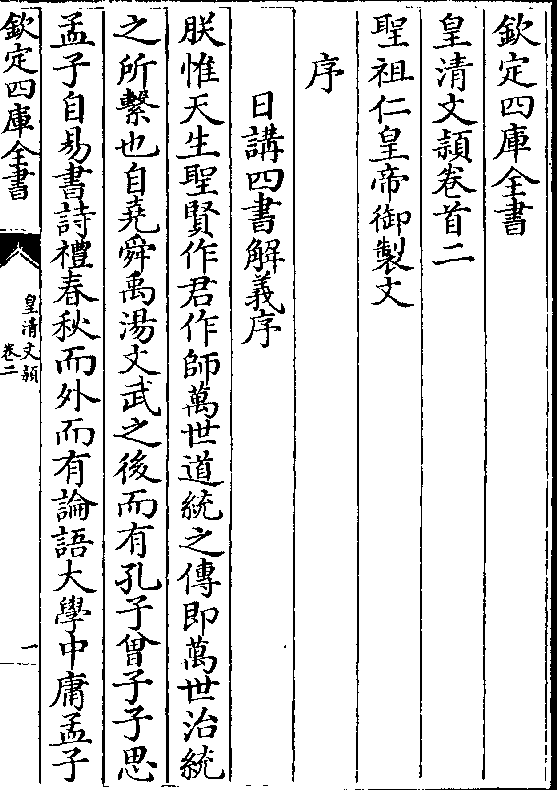 欽定四庫全書
皇清文頴卷首二
聖祖仁皇帝御製文
序
日講四書解義序
朕惟天生聖賢作君作師萬世道統之傳即萬世治統
之所繫也自堯舜禹湯文武之後而有孔子曾子子思
孟子自易書詩禮春秋而外而有論語大學中庸孟子
欽定四庫全書
皇清文頴
卷二
一